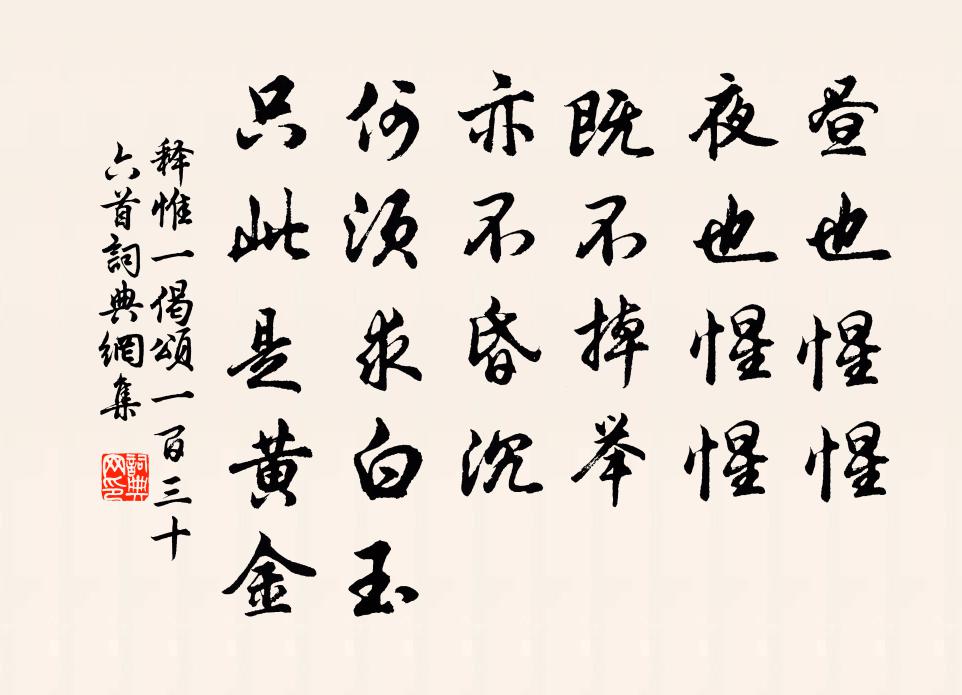 昼也惺惺
夜也惺惺
既不掉举
亦不昏沉
何须求白玉
只此是黄金
释惟一偈頌一百三十
六首詞典網集
詞典
网印